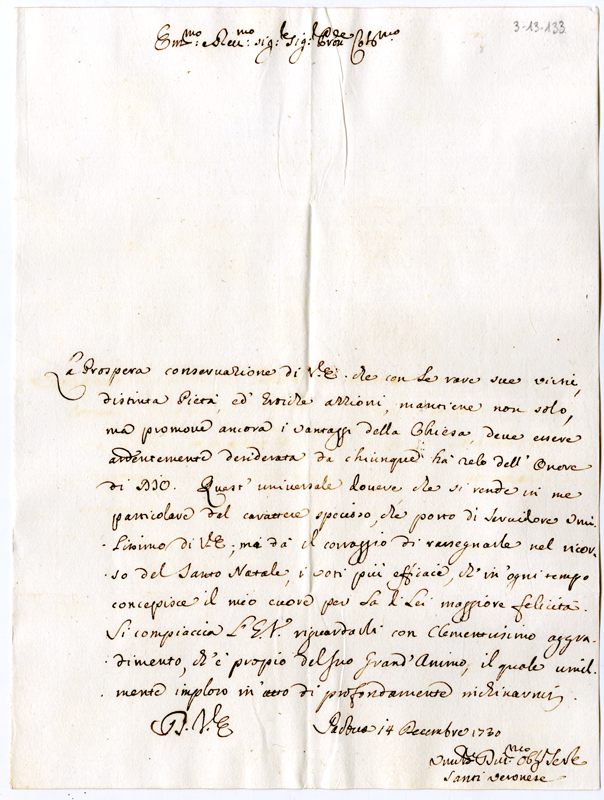 3-13-133
Em.mo e Rev.mo Sig.re Sig.r Pron Col.mo
La Prospera conservazione di V.E. che con le rare sue virtù,
distinta Pietà, ed Eroiche azzioni, mantiene non solo,
ma promove ancora i vantaggi della Chiesa, deve essere
ardentemente desiderata da chiunque hà zelo dell'Onore
di DIO. Quest'universale dovere che si rende in me
particolare dal carattere specioso, che porto di Servitore Umi-
lissimo di V.E., mi dà il corraggio di rassegnarle nel ricor-
so del Santo Natale, i voti più efficaci, ch'in'ogni tempo
concepisce il mio cuore per la di Lei maggiore felicità.
Si compiaccia L'E.V. riguardarli con Clementissimo aggra-
dimento, ch'è proprio del suo Grand'Animo, il quale umil-
mente imploro in'atto di profondamente inchinarmi.
D. V.E.
Padova 14 Decembre 1730
Umil.mo Div.mo Obl.mo Se.re
Santi Veronese